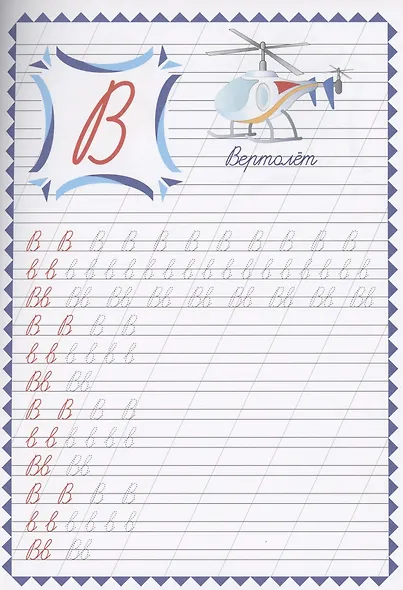 В
Вертолёт
В В В В В В В В В В В
в в в в в в в в в в в в в в в в в в в
Вв Вв Вв Вв Вв Вв Вв Вв Вв
В В В В
в в в в в в
Вв Вв
В В В В
в в в в в в
Вв Вв
В В В В
в в в в в в
Вв Вв